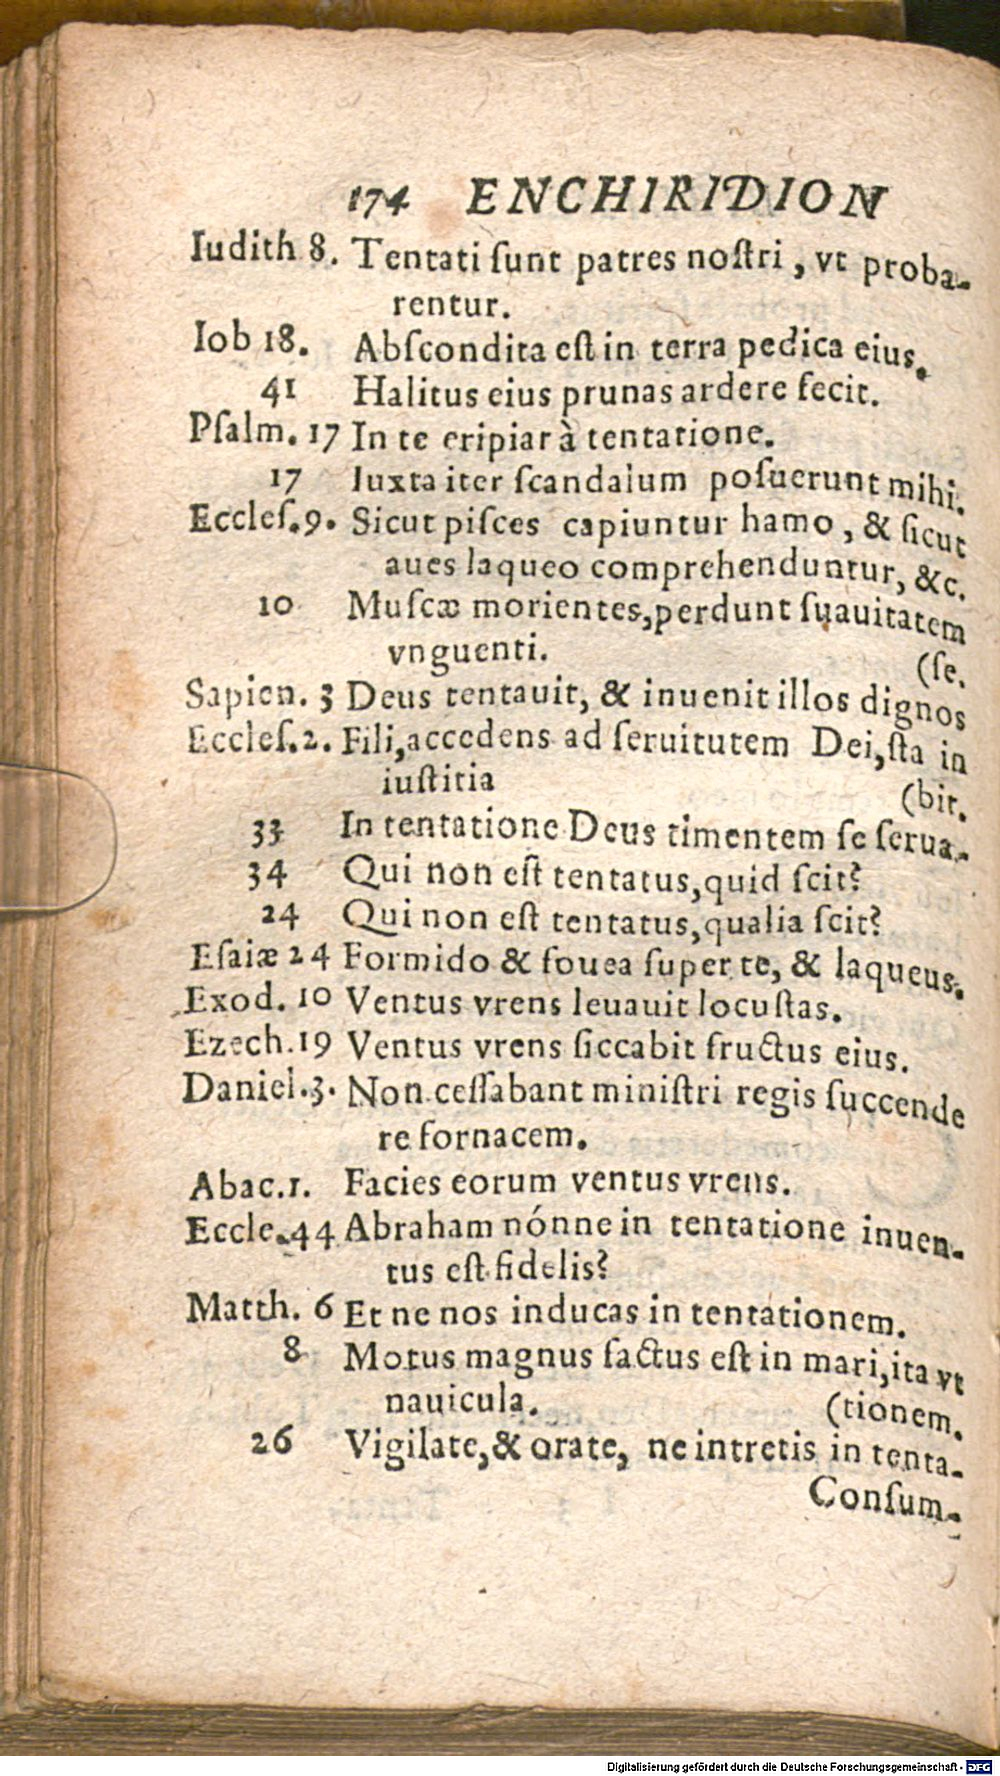 174 ENCHIRIDION
Iudith 8. Tentati ſunt patres noſtri, vt proba-
rentur.
Iob 18. Abſcondita eſt in terra pedica eius.
41 Halitus eius prunas ardere fecit.
Pſalm. 17 In te eripiar à tentatione.
17 Iuxta iter ſcandalum poſuerunt mihi.
Eccleſ.9. Sicut piſces capiuntur hamo, & ſicut
aues laqueo comprehenduntur, &c.
10 Muſcæ morientes, perdunt ſuauitatem
vnguenti. (ſe.
Sapien. 3 Deus tentauit, & inuenit illos dignos
Eccleſ.2. Fili, accedens ad ſeruitutem Dei, ſta in
iuſtitia (bit.
33 In tentatione Deus timentem ſe ſerua-
34 Qui non eſt tentatus, quid ſcit?
24 Qui non eſt tentatus, qualia ſcit?
Eſaiæ 24 Formido & fouea ſuper te, & laqueus.
Exod. 10 Ventus vrens leuauit locuſtas.
Ezech.19 Ventus vrens ſiccabit fructus eius.
Daniel.3. Non ceſſabant miniſtri regis ſuccende
re fornacem.
Abac.1. Facies eorum ventus vrens.
Eccle.44 Abraham nónne in tentatione inuen-
tus eſt fidelis?
Matth. 6 Et ne nos inducas in tentationem.
8 Motus magnus factus eſt in mari, ita vt
nauicula. (tionem.
26 Vigilate, & orate, ne intretis in tenta-
Conſum-
Digitalisierung gefördert durch die Deutsche Forschungsgemeinschaft - DFG